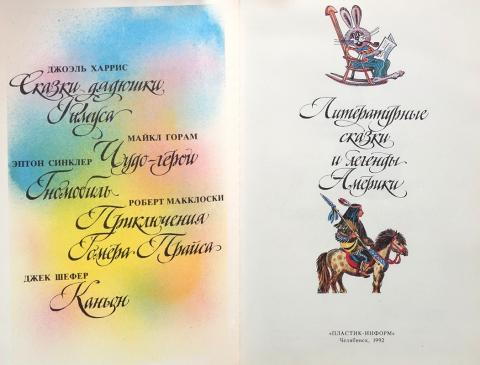 ДЖОЭЛЬ ХАРРИС
Сказки дядюшки
Римуса
МАЙКЛ ГОРАМ
Чудо-герои
ЭПТОН СИНКЛЕР
Гномобиль
РОБЕРТ МАККЛОСКИ
Приключения
Гомера Прайса
ДЖЕК ШЕФЕР
Каньон
Литературные
сказки
и легенды
Америки
«ПЛАСТИК-ИНФОРМ»
Челябинск, 1992